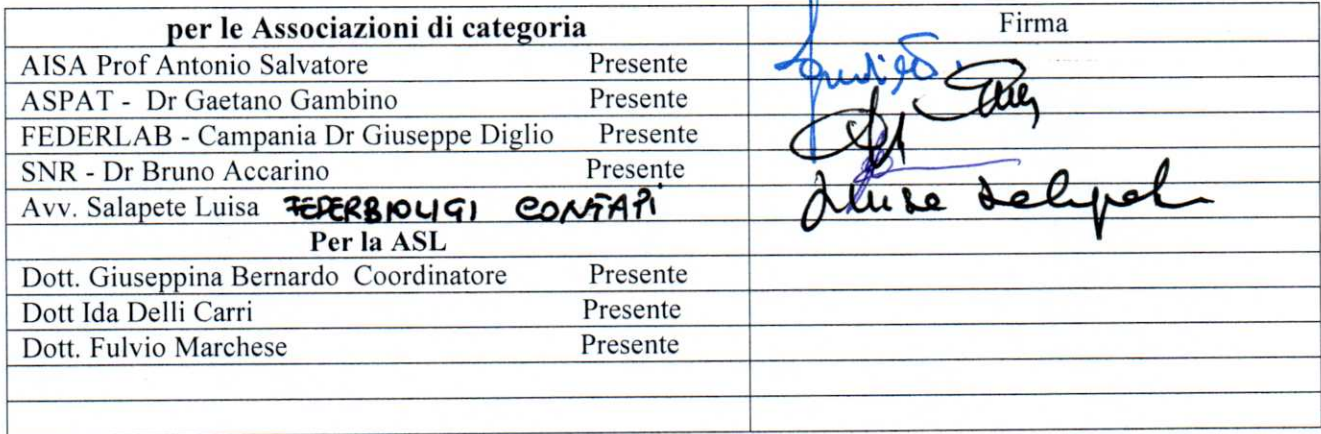 per le Associazioni di categoria Firma
AISA Prof Antonio Salvatore Presente
ASPAT - Dr Gaetano Gambino Presente
FEDERLAB - Campania Dr Giuseppe Diglio Presente
SNR - Dr Bruno Accarino Presente
Avv. Salapete Luisa FEDERBIOLIGI CONFAPI
Per la ASL
Dott. Giuseppina Bernardo Coordinatore Presente
Dott Ida Delli Carri Presente
Dott. Fulvio Marchese Presente